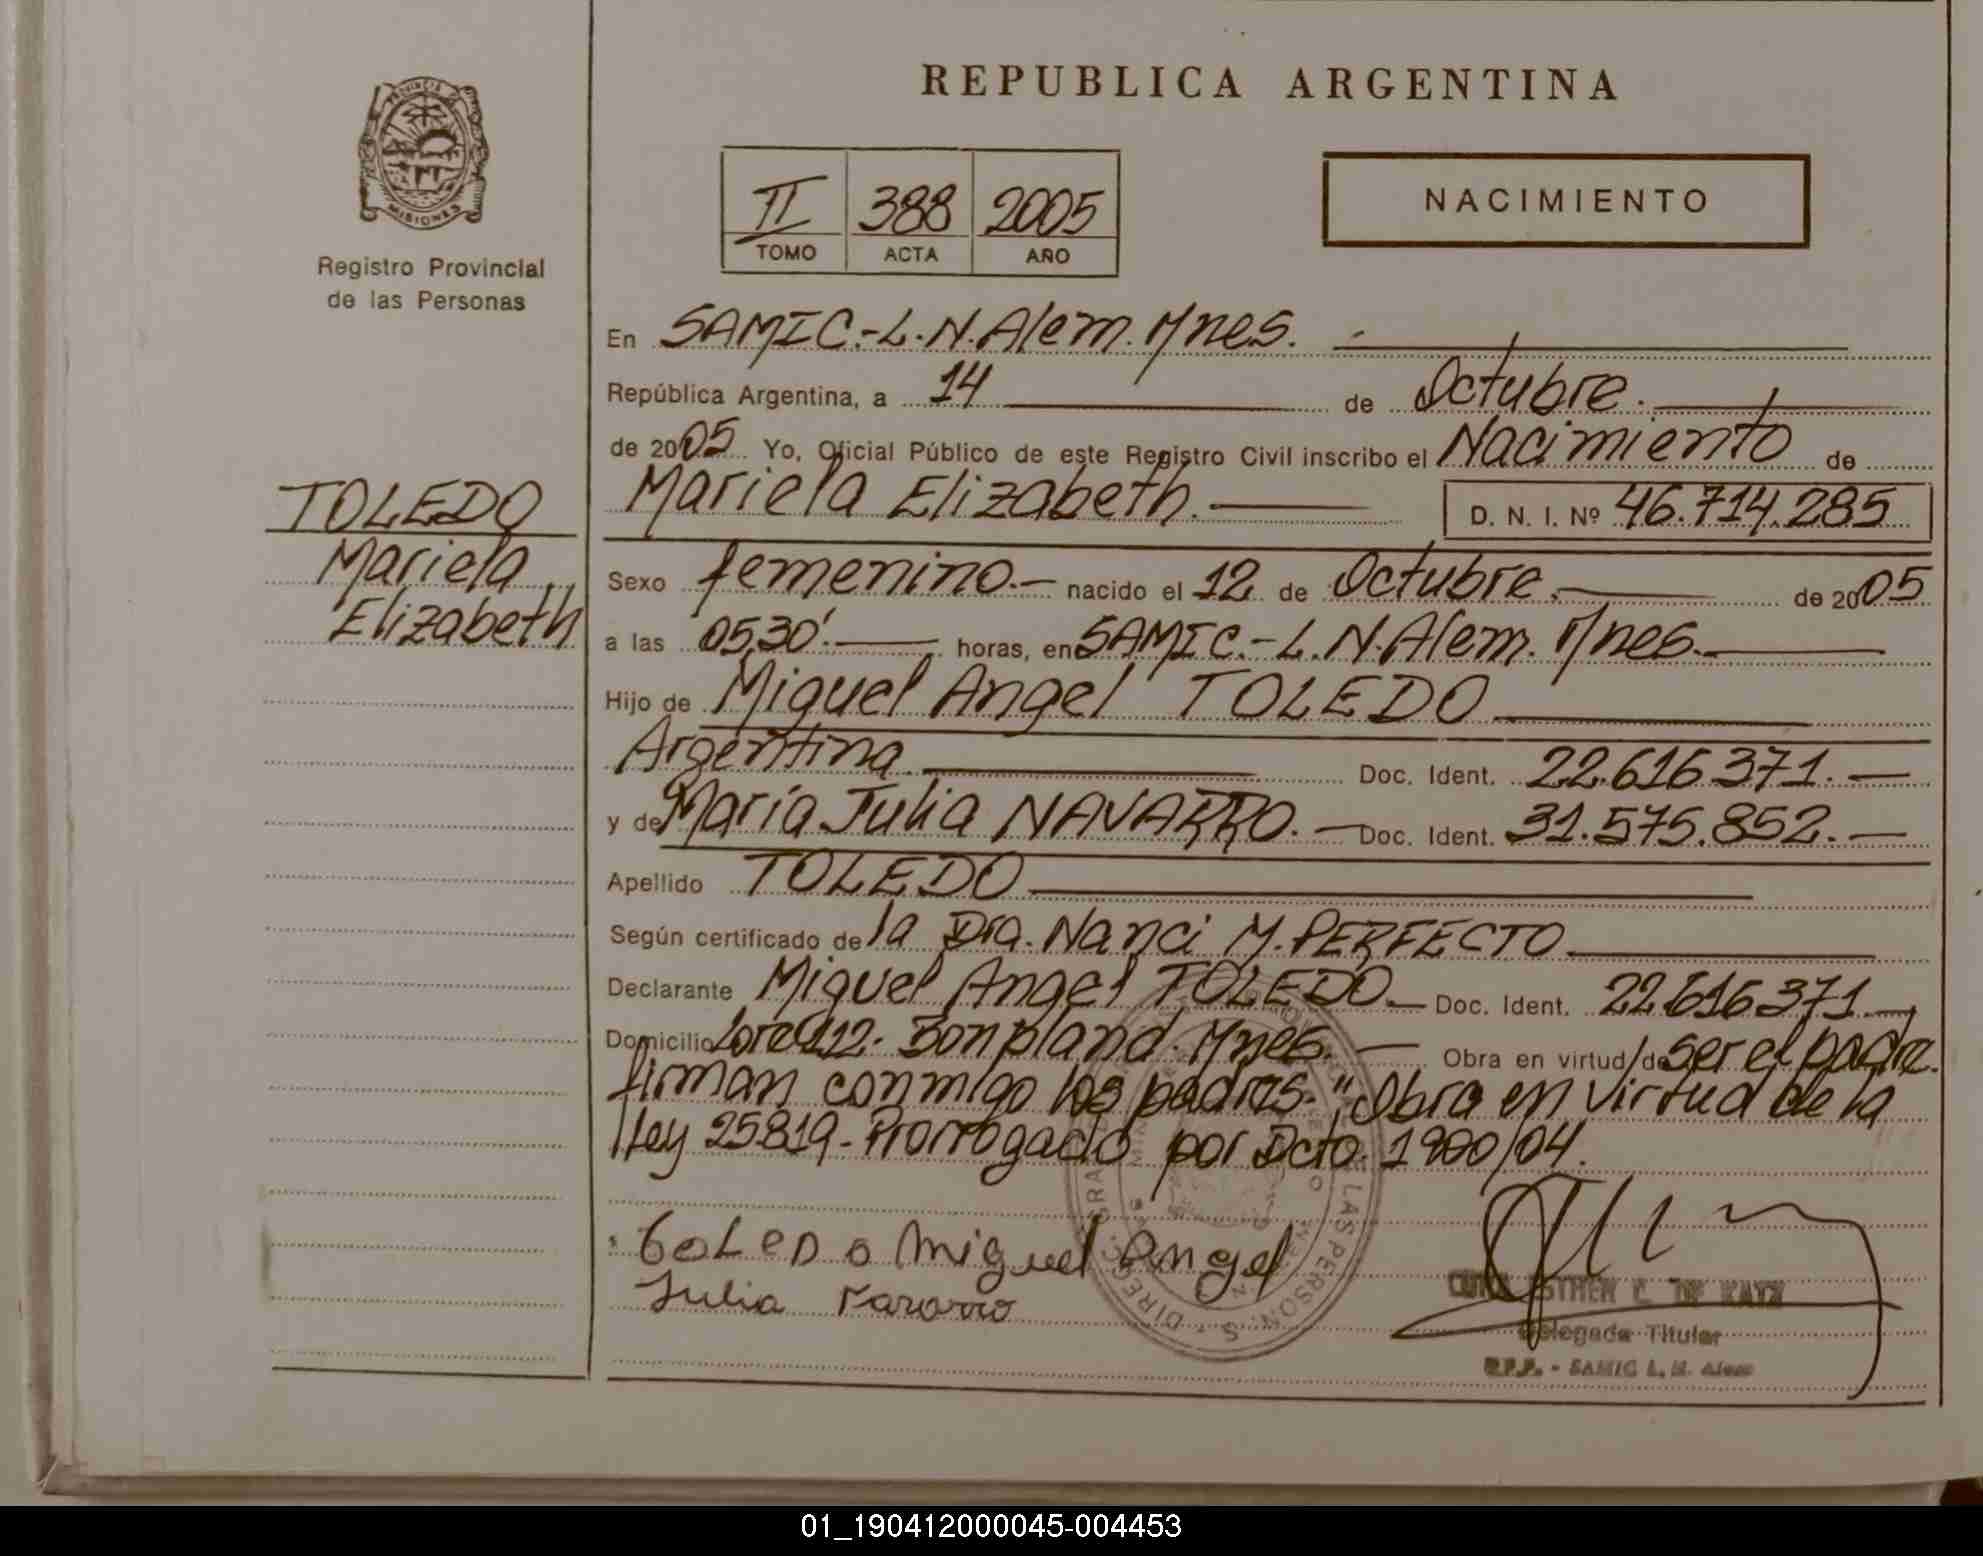 REPUBLICA ARGENTINA
PROVINCIA DE
MISIONES
Registro Provincial
de las Personas
II 388 2005
TOMO ACTA AÑO
NACIMIENTO
En SAMIC.-L.N.Alem. Mnes.
República Argentina, a 14 de Octubre.
de 2005 Yo, Oficial Público de este Registro Civil inscribo el Nacimiento de
Mariela Elizabeth. D. N. I. Nº 46.714.285
TOLEDO
Mariela
Elizabeth
Sexo femenino.- nacido el 12 de Octubre. de 2005
a las 05,30'. horas, en SAMIC.-L.N.Alem. Mnes.
Hijo de Miguel Angel TOLEDO
Argentina. Doc. Ident. 22.616.371.-
y de María Julia NAVARRO.- Doc. Ident. 31.575.852.-
Apellido TOLEDO
Según certificado de la Dra. Nanci M. PERFECTO
Declarante Miguel Angel TOLEDO.- Doc. Ident. 22.616.371.-
Domicilio Bonpland. Mnes.- Obra en virtud de ser el padre.
firman conmigo los padres.-"Obra en virtud de la
ley 25819-Prorrogado por Dcto. 1900/04.
TOLEDO Miguel Angel
Julia Navarro
ESTHER C. DE KATZ
Delegada Titular
R.P.P. - SAMIC L. N. Alem
01_190412000045-004453